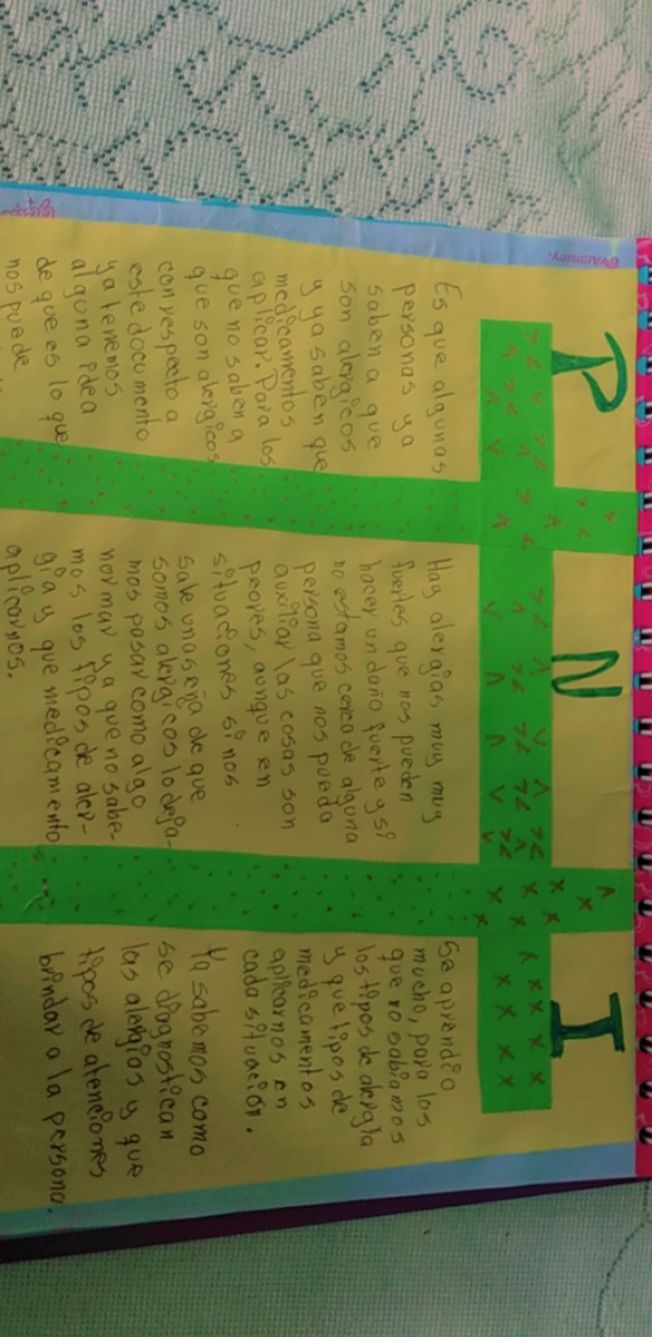 P
Es que algunas
personas ya
saben a que
son alergicos
y ya saben que
medicamentos
aplicar. Para los
que no saben a
que son alergicos
con respecto a
este documento
ya tenemos
alguna idea
de que es lo que
nos puede
N
Hay alergias muy muy
fuertes que nos pueden
hacer un daño fuerte y si
no estamos cerca de alguna
persona que nos pueda
auxiliar las cosas son
peores, aunque en
situaciones si nos
sale una seña de que
somos alergicos lo deja-
mos pasar como algo
normar ya que no sabe-
mos los tipos de aler-
gia y que medicamento
aplicarnos.
I
Se aprendio
mucho, para los
que no sabiamos
los tipos de alergia
y que tipos de
medicamentos
aplicarnos en
cada situación.
Ya sabemos como
se diagnostican
las alergias y que
tipos de atenciones
brindar a la persona.